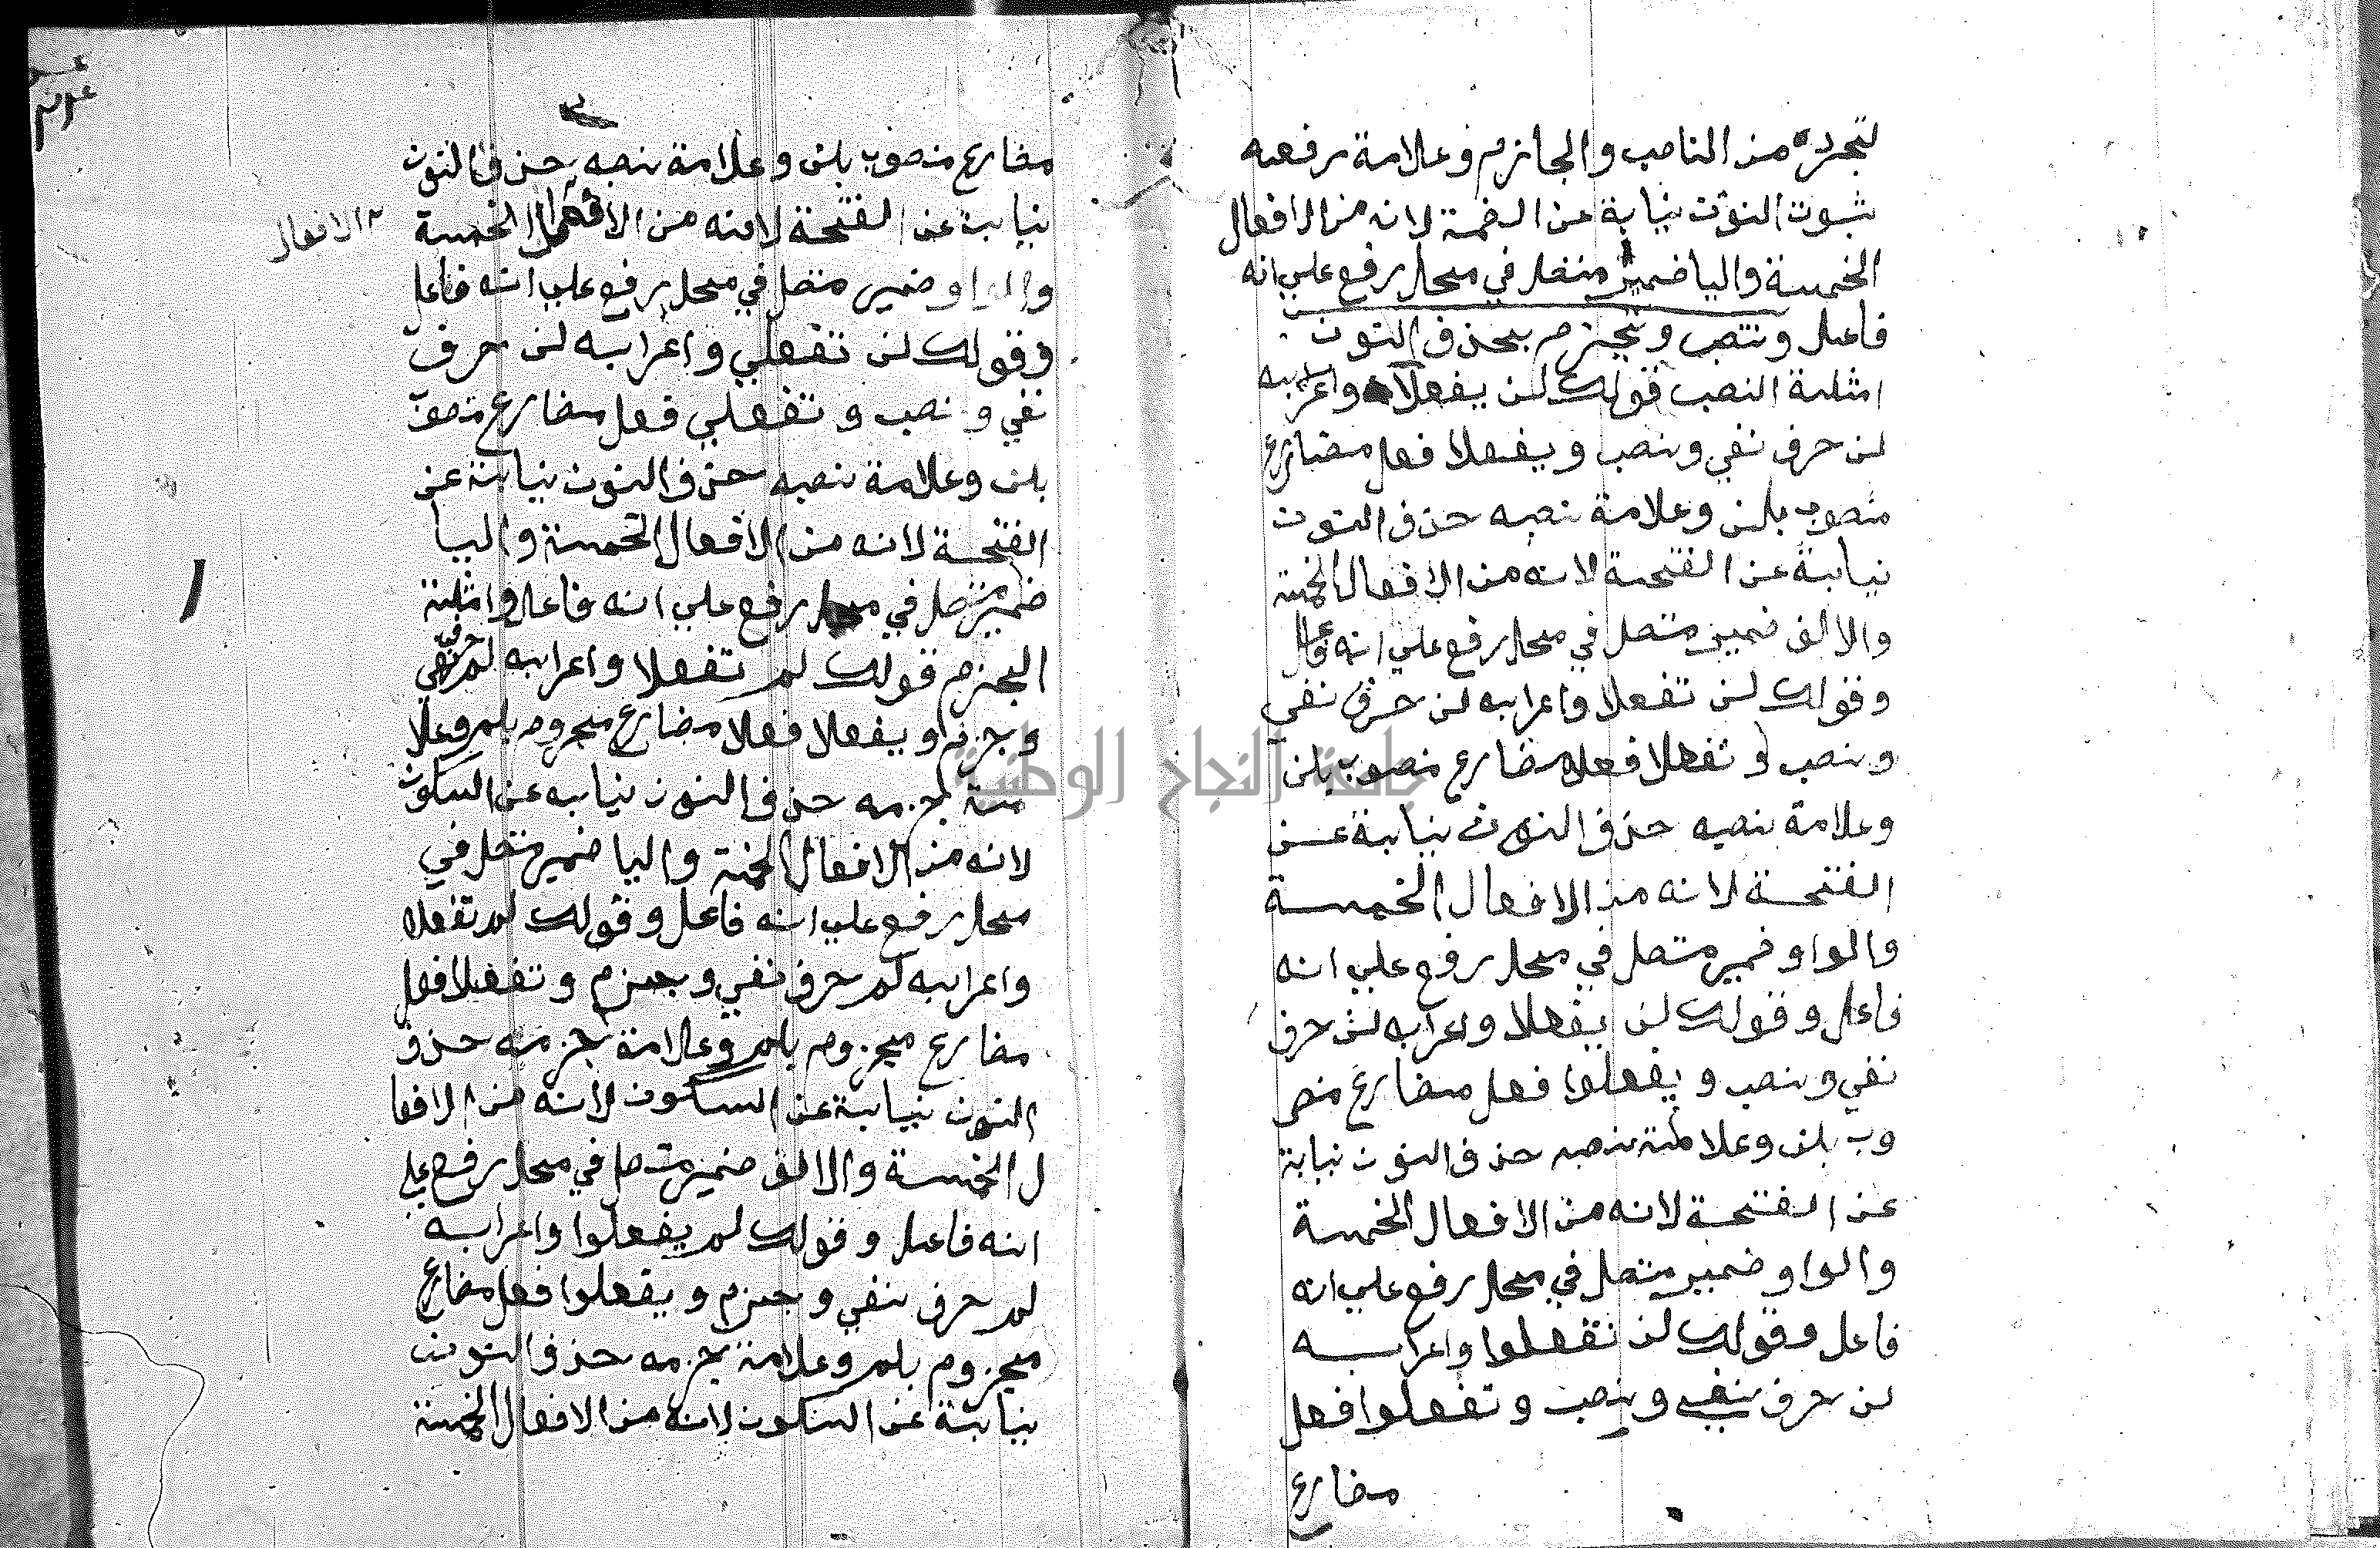 لتجرده من الناصب والجازم وعلامة رفعه
ثبوت النون نيابة عن الضمة لانه من الافعال
الخمسة واليا ضمير متصل في محل رفع علي انه
فاعل وتنصب وتجزم بحذف النون
امثلة النصب قولك لن يفعلا واعرابه
لن حرف نفي ونصب ويفعلا فعل مضارع
منصوب بلن وعلامة نصبه حذف النون
نيابة عن الفتحة لانه من الافعال الخمسة
والالف ضمير متصل في محل رفع علي انه فاعل
وقولك لن تفعلا واعرابه لن حرف نفي
ونصب وتفعلا فعل مضارع منصوب بلن
وعلامة نصبه حذف النون نيابة عن
الفتحة لانه من الافعال الخمسة
والواو ضمير متصل في محل رفع علي انه
فاعل وقولك لن يفعلا واعرابه لن حرف
نفي ونصب ويفعلوا فعل مضارع منص
وب بلن وعلامته نصبه حذف النون نيابة
عن الفتحة لانه من الافعال الخمسة
والواو ضمير متصل في محل رفع علي انه
فاعل وقولك لن تفعلوا واعرابه
لن حرف نفي ونصب وتفعلوا فعل
مضارع
مضارع منصوب بلن وعلامة نصبه حذف النون
نيابة عن الفتحة لانه من الخمسة
الافعال
والواو ضمير متصل في محل رفع علي انه فاعل
وقولك لن تفعلي واعرابه لن حرف
نفي ونصب وتفعلي فعل مضارع منصوب
بلن وعلامة نصبه حذف النون نيابة عن
الفتحة لانه من الافعال الخمسة واليا
ضمير متصل في محل رفع علي انه فاعل وامثلة
الجزم قولك لم تفعلا واعرابه لم حرف نفي
وجزم ويفعلا فعلا مضارع مجزوم بلم وعلا
مة جزمه حذف النون نيابه عن السكون
لانه من الافعال الخمسة واليا ضمير متصل في
محل رفع علي انه فاعل وقولك لم تفعلا
واعرابه لم حرف نفي وجزم وتفعلا فعل
مضارع مجزوم بلم وعلامة جزمه حذف
النون نيابة عن السكون لانه من الافعا
ل الخمسة والالف ضمير متصل في محل رفع علي
انه فاعل وقولك لم يفعلوا واعرابه
لم حرف نفي وجزم ويفعلوا فعل مضارع
مجزوم بلم وعلامة جزمه حذف النون
نيابة عن السكون لانه من الافعال الخمسة
جامعة النجاح الوطنية